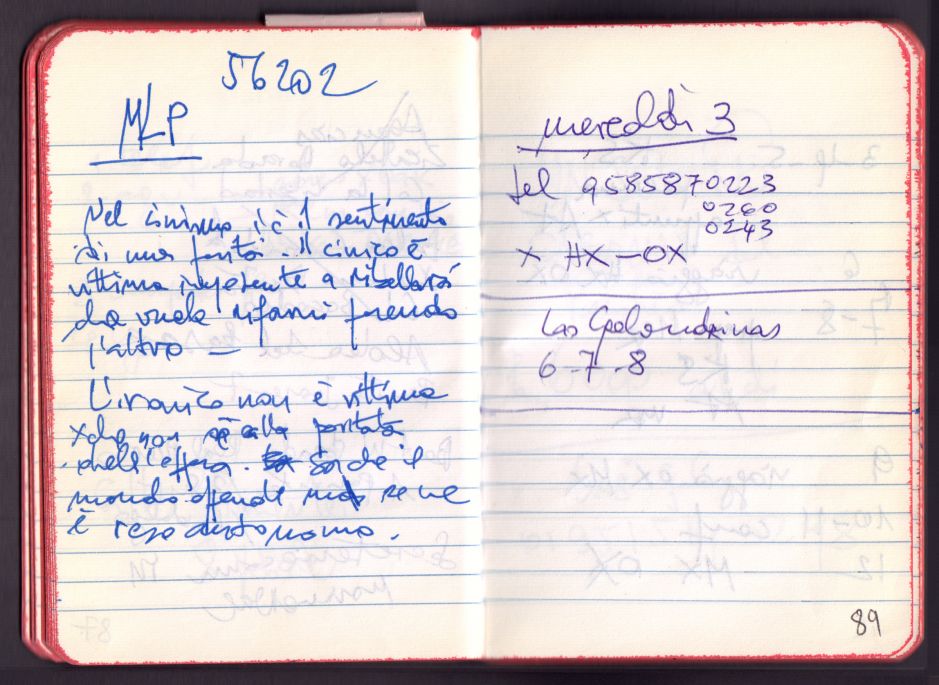 56202
MLP
Nel cinismo c'è il sentimento
di una ferita. Il cinico è
vittima impotente a ribellarsi
che vuole rifarsi ferendo
l'altro —
L'ironico non è vittima
xche non è alla portata
dell'offesa. Sa che il
mondo offende ma se ne
è reso autonomo.
mercoledì 3
tel 9585870223
0260
0243
x HX-OX
Las Golondrinas
6-7-8
89